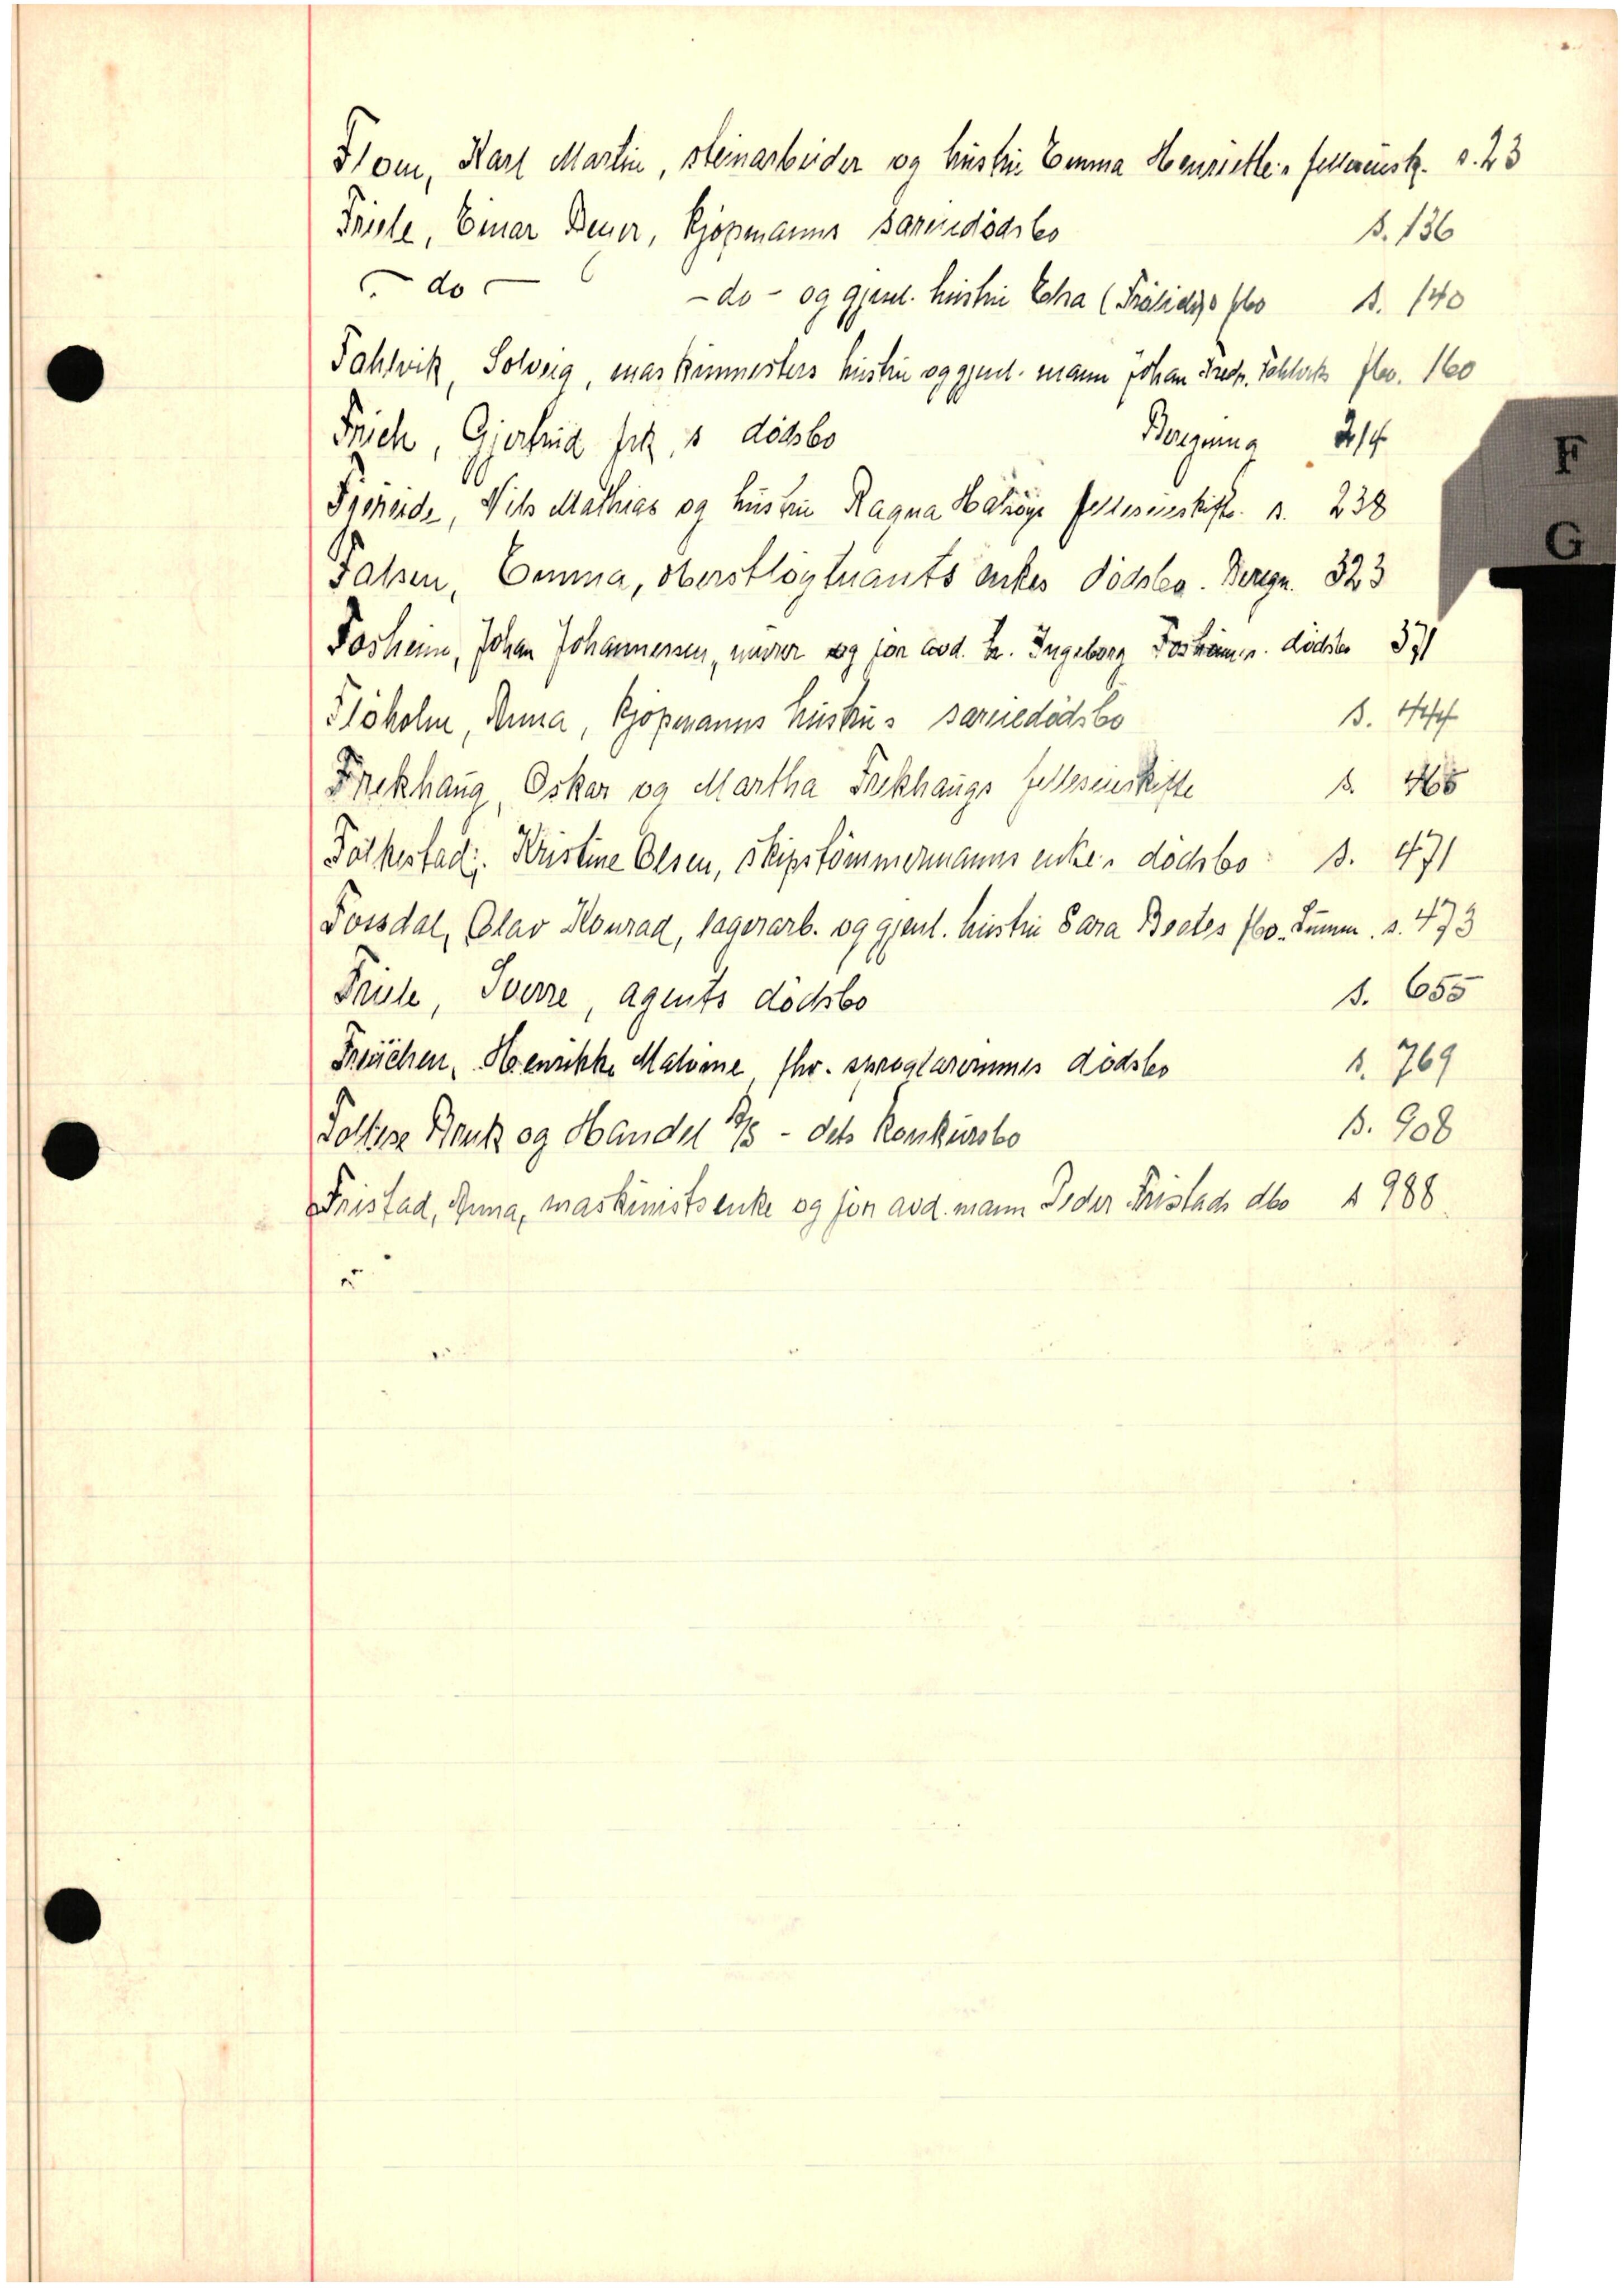 Flom, Karl Martin, steinarbeider og hustru Emma Henriette's fellesuskj. s. 23
Friele, Einar Beyer, kjøpmanns særeiedødsbo s. 136
- do - - do - og gjenl. hustru Edna (Frölich)s fbo s. 140
Fahlvik, Solveig, maskinmesters hustru og gjenl. mann Johan Fredr. Fahlviks fbo. 160
Frich, Gjertrud frk,s dödsbo Beregning 214
Nils Mathias og hustru Ragna felleseieskifte. s. 238
Falsen, Emma, oberstlöytnants enkes dödsbo. Beregn. 323
Fosheim, Johan Johannessen, murer og før avd. h. Ingeborg Fosheims. dödsbo 371
Flöholm, Anna, kjöpmanns hustru's særeiedödsbo s. 444
Frekhaug, Oskar og Martha Frekhaugs felleseieskifte s. 465
Folkestad, Kristine Olsen, skipstömmermanns enke's dödsbo s. 471
Fossdal, Olav Konrad, lagerarb. og gjenl. hustru Sara Boetes fbo. Summ. s. 473
Friele, Sverre, agents dödsbo s. 655
Henrikke Malvine, fhv. dödsbo s. 769
Bruk og Handel A/S - dets konkursbo s. 908
Fristad, Anna, maskinistsenke og för avd. mann Peder Fristads dbo s 988
F
G